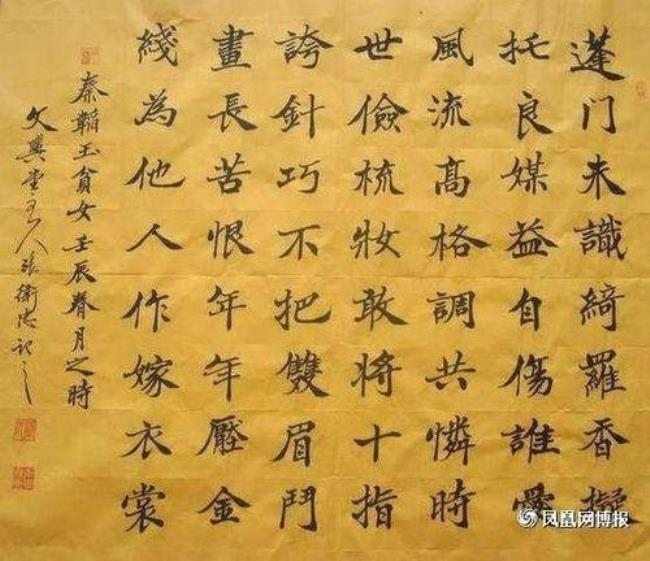 蓬门未識綺羅香擬
托良媒益自傷誰愛
風流高格調共憐時
世儉梳妝敢將十指
誇針巧不把雙眉鬥
畫長苦恨年年壓金
綫為他人作嫁衣裳
秦韜玉貧女 壬辰春月之時
文興堂主人張衛忠記之
凤凰网博报